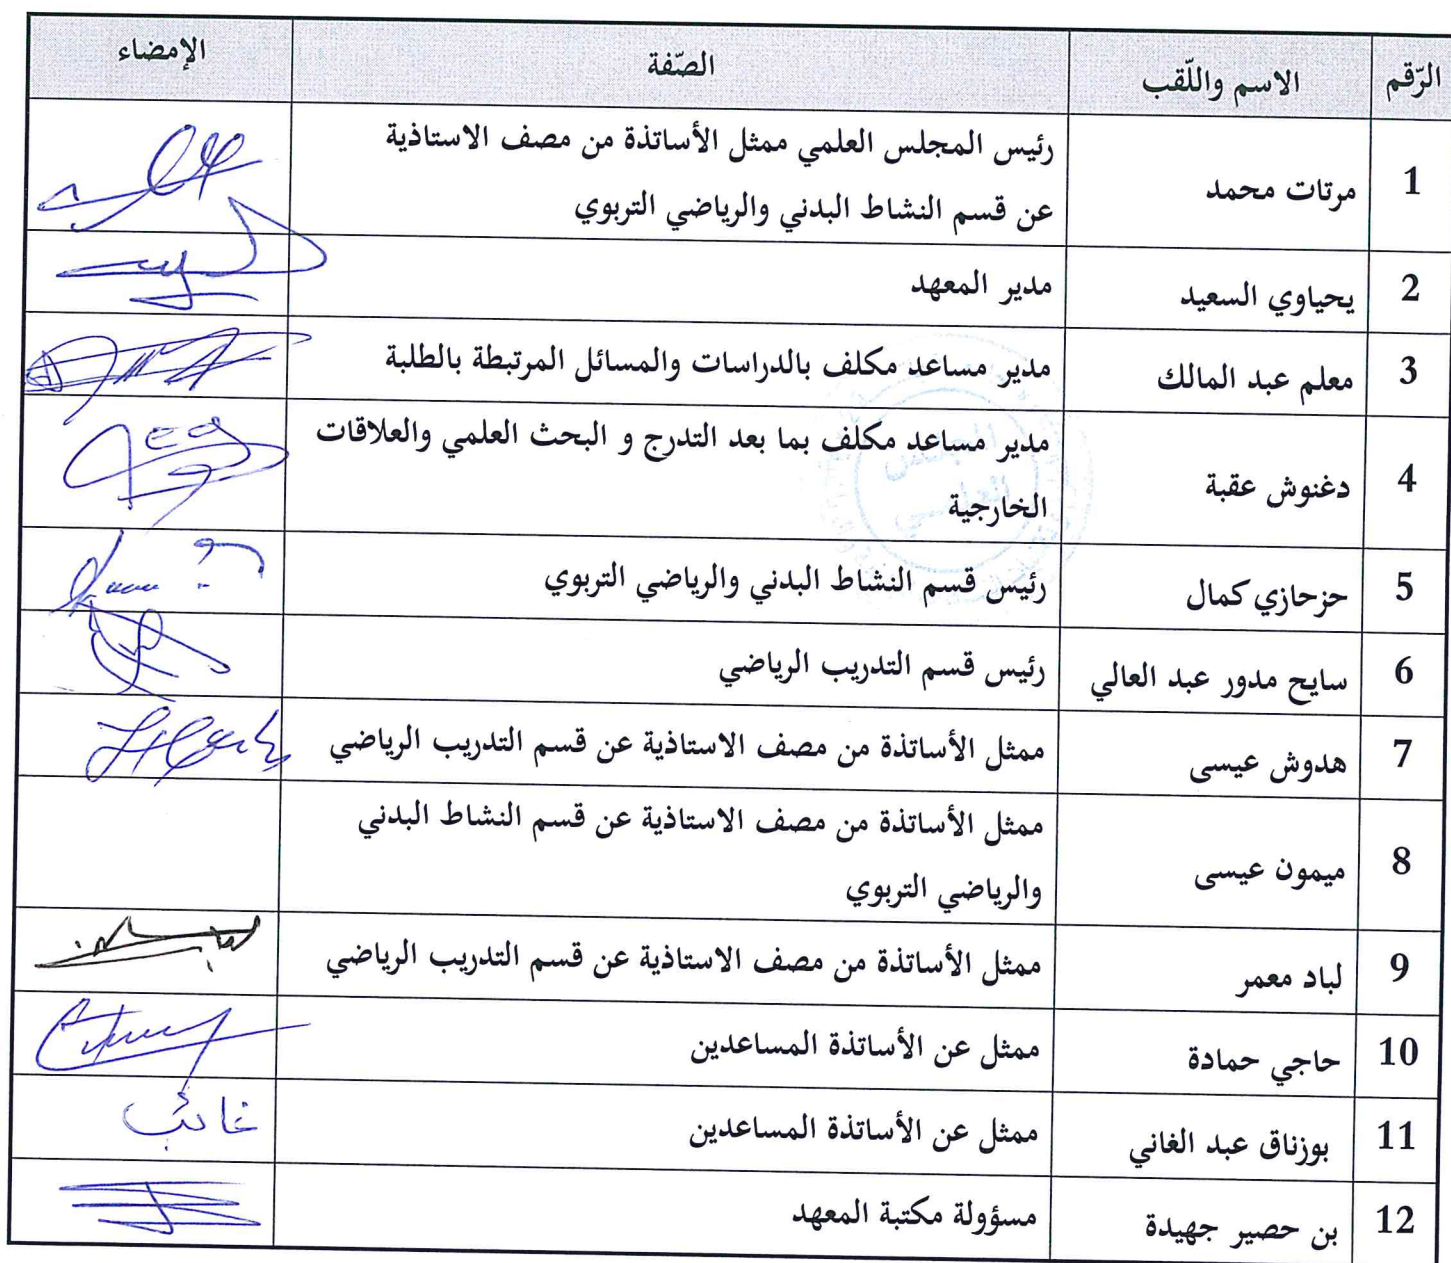 الرّقم الاسم واللّقب الصّفة الإمضاء
1 مرتات محمد رئيس المجلس العلمي ممثل الأساتذة من مصف الاستاذية
عن قسم النشاط البدني والرياضي التربوي
2 يحياوي السعيد مدير المعهد
3 معلم عبد المالك مدير مساعد مكلف بالدراسات والمسائل المرتبطة بالطلبة
4 دغنوش عقبة مدير مساعد مكلف بما بعد التدرج و البحث العلمي والعلاقات
الخارجية
5 حزحازي كمال رئيس قسم النشاط البدني والرياضي التربوي
6 سايح مدور عبد العالي رئيس قسم التدريب الرياضي
7 هدوش عيسى ممثل الأساتذة من مصف الاستاذية عن قسم التدريب الرياضي
8 ميمون عيسى ممثل الأساتذة من مصف الاستاذية عن قسم النشاط البدني
والرياضي التربوي
9 لباد معمر ممثل الأساتذة من مصف الاستاذية عن قسم التدريب الرياضي
10 حاجي حمادة ممثل عن الأساتذة المساعدين
11 بوزناق عبد الغاني ممثل عن الأساتذة المساعدين غائب
12 بن حصير جهيدة مسؤولة مكتبة المعهد
المجلس
العلمي